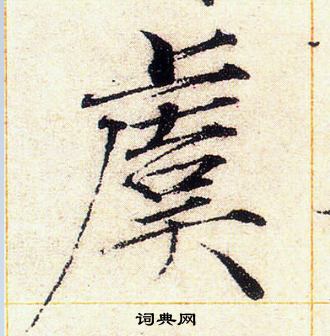 虞
词典网